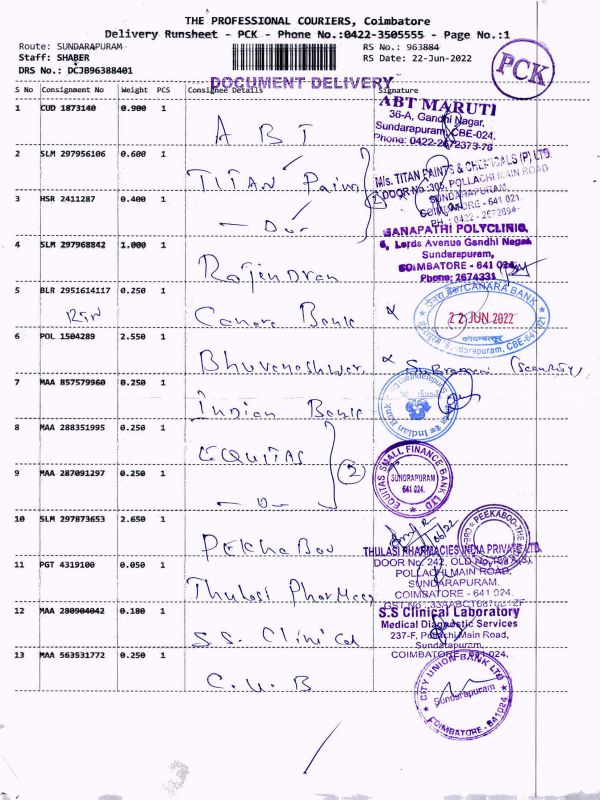 THE PROFESSIONAL COURIERS, Coimbatore
Delivery Runsheet - PCK - Phone No.:0422-3505555 - Page No.:1
Route: SUNDARAPURAM
RS No.: 963884
Staff: SHABER
RS Date: 22-Jun-2022
DRS No.: DCJB96388401
PCK
DOCUMENT DELIVERY
S No Consignment No Weight PCS Consignee Details Signature
1 CUD 1873140 0.900 1 A B T
ABT MARUTI
36-A, Gandhi Nagar,
Sundarapuram, CBE-024.
Phone: 0422-2672373-76
2 SLM 297956106 0.600 1 TITAN Paim
M/s. TITAN PAINTS & CHEMICALS (P) LTD.
DOOR NO: 305, POLLACHI MAIN ROAD
SUNDARAPURAM,
COIMBATORE - 641 021
PH : 0422 - 2672894
3 HSR 2411287 0.400 1 - Do -
2
4 SLM 297968842 1.000 1 Rajendran
GANAPATHI POLYCLINIC,
6, Lords Avenue Gandhi Nagar
Sundarapuram,
COIMBATORE - 641 024,
Phone: 2674331
5 BLR 2951614117 0.250 1 Canara Bank
CANARA BANK
22 JUN 2022
Sundarapuram, CBE-641 021
6 POL 1504289 2.550 1 Bhuvaneshwar
(Security)
7 MAA 857579960 0.250 1 Indian Bank
Indian Bank
8 MAA 288351995 0.250 1 EQUITAS
EQUITAS SMALL FINANCE BANK LTD
SUNDRAPURAM
641 024.
9 MAA 287091297 0.250 1 - Do -
2
10 SLM 297873653 2.650 1 PEKhaBoo
PEEKABOO-THE
11 PGT 4319100 0.050 1 Thulasi Pharmacy
THULASI PHARMACIES INDIA PRIVATE LTD.
DOOR No. 242, OLD No.
POLLACHI MAIN ROAD,
SUNDARAPURAM,
COIMBATORE - 641 024.
12 MAA 280904042 0.180 1 S.S. Clinical
S.S Clinical Laboratory
Medical Diagnostic Services
237-F, Pollachi Main Road,
Sundarapuram,
COIMBATORE - 641 024.
13 MAA 563531772 0.250 1 C.U.B
CITY UNION BANK LTD
Sundarapuram
COIMBATORE - 641024